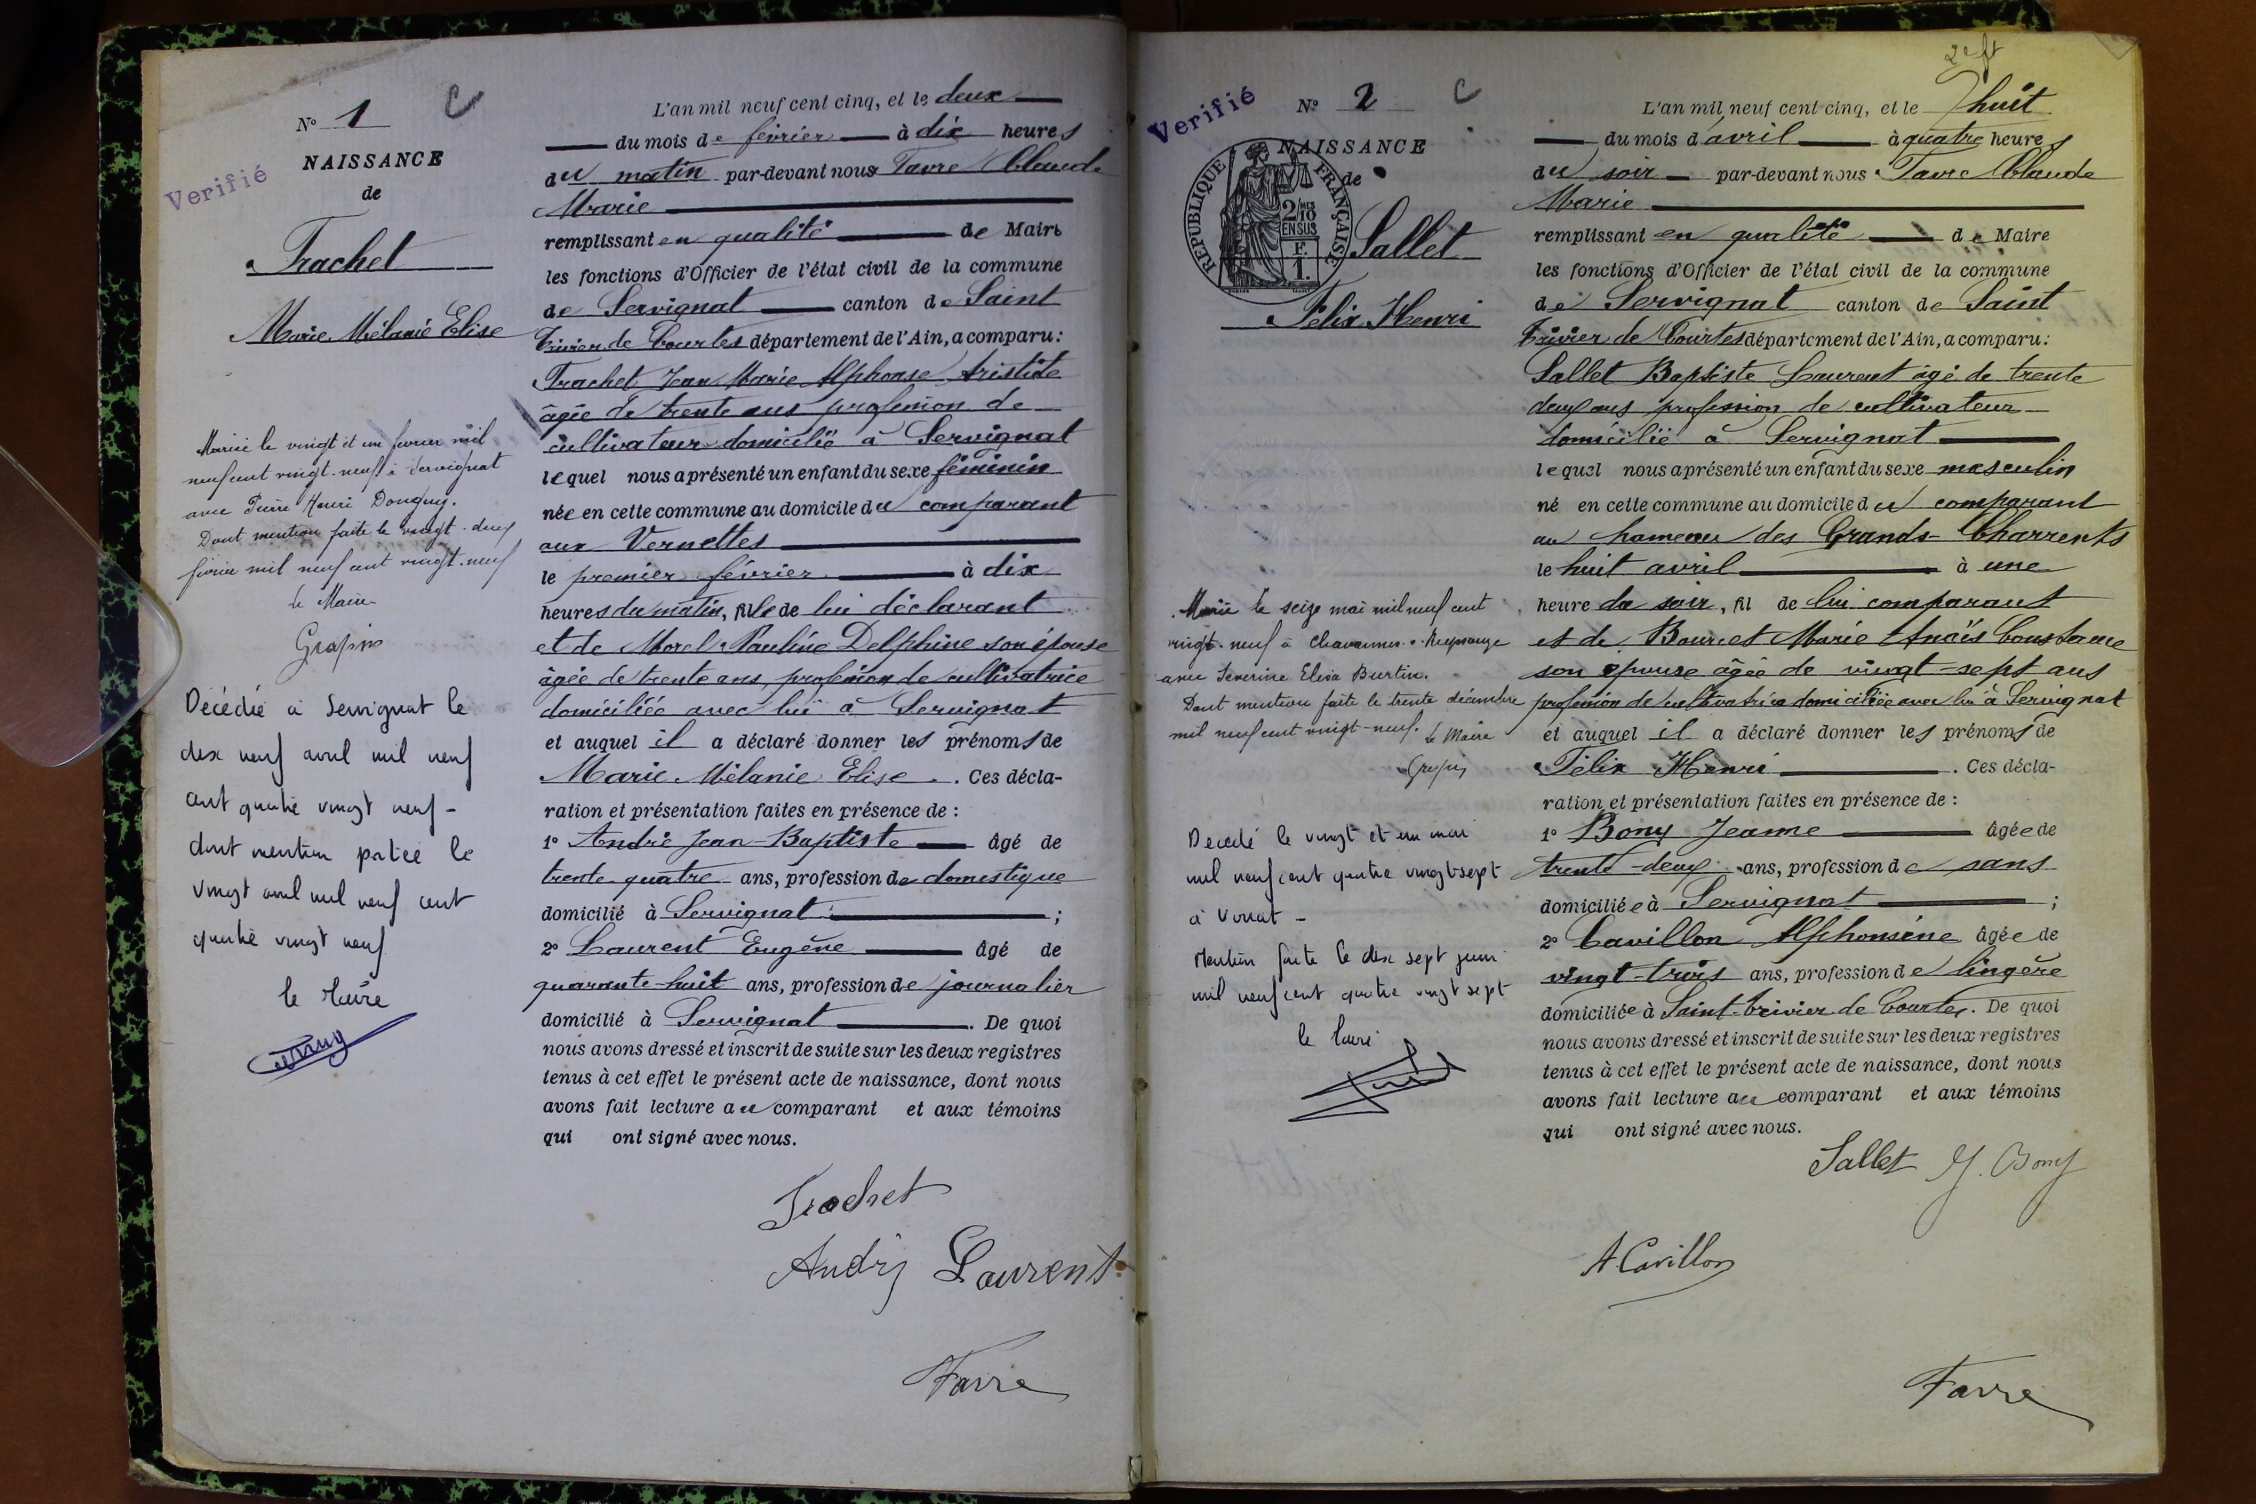 N° 1
C
Verifié
NAISSANCE
de
Trachet
Marie Mélanie Elise
Mariée le vingt et un février mil
neuf cent vingt-neuf à Servignat
avec Pierre Henri Donguy.
Dont mention faite le vingt-deux
février mil neuf cent vingt-neuf
Le Maire
Grapin
Décédée à Servignat le
dix neuf avril mil neuf
cent quatre vingt neuf -
dont mention portée le
vingt avril mil neuf cent
quatre vingt neuf
le Maire
L'an mil neuf cent cinq, et le deux
du mois de février à dix heures
du matin par-devant nous Favre Claude
Marie
remplissant en qualité de Maire
les fonctions d'Officier de l'état civil de la commune
de Servignat canton de Saint
Trivier de Courtes département de l'Ain, a comparu:
Trachet Jean Marie Alphonse Aristide
âgée de trente ans profession de
cultivateur domicilié à Servignat
lequel nous a présenté un enfant du sexe féminin
née en cette commune au domicile du comparant
aux Vernettes
le premier février à dix
heures du matin, fille de lui déclarant
et de Morel Pauline Delphine son épouse
âgée de trente ans, profession de cultivatrice
domiciliée avec lui à Servignat
et auquel il a déclaré donner les prénoms de
Marie Mélanie Elise. Ces décla-
ration et présentation faites en présence de :
1° André Jean-Baptiste âgé de
trente quatre ans, profession de domestique
domicilié à Servignat ;
2° Laurent Eugène âgé de
quarante-huit ans, profession de journalier
domicilié à Servignat. De quoi
nous avons dressé et inscrit de suite sur les deux registres
tenus à cet effet le présent acte de naissance, dont nous
avons fait lecture au comparant et aux témoins
qui ont signé avec nous.
Trachet
André Laurent
Favre
2e ft
Verifié
N° 2
C
NAISSANCE
de
REPUBLIQUE FRANÇAISE
2/10 MES
EN SUS
F.
1.
Sallet
Félix Henri
Marié le seize mai mil neuf cent
vingt-neuf à Chavannes-s-Reyssouze
avec Séverine Elisa Burtin.
Dont mention faite le trente décembre
mil neuf cent vingt-neuf. Le Maire
Grapin
Décédé le vingt et un mai
mil neuf cent quatre vingt sept
à Viriat -
Mention faite le dix sept juin
mil neuf cent quatre vingt sept
le Maire
L'an mil neuf cent cinq, et le huit
du mois d'avril à quatre heures
du soir par-devant nous Favre Claude
Marie
remplissant en qualité de Maire
les fonctions d'Officier de l'état civil de la commune
de Servignat canton de Saint
Trivier de Courtes département de l'Ain, a comparu:
Sallet Baptiste Laurent âgé de trente
deux ans profession de cultivateur
domicilié à Servignat
lequel nous a présenté un enfant du sexe masculin
né en cette commune au domicile du comparant
au hameau des Grands-Charrents
le huit avril à une
heure du soir, fil de lui comparant
et de Bourcet Marie Anaïs Constance
son épouse âgée de vingt-sept ans
profession de cultivatrice domiciliée avec lui à Servignat
et auquel il a déclaré donner les prénoms de
Félix Henri. Ces décla-
ration et présentation faites en présence de :
1° Bony Jeanne âgée de
trente-deux ans, profession de sans
domiciliée à Servignat ;
2° Cavillon Alphonsine âgée de
vingt-trois ans, profession de lingère
domiciliée à Saint-Trivier de Courtes. De quoi
nous avons dressé et inscrit de suite sur les deux registres
tenus à cet effet le présent acte de naissance, dont nous
avons fait lecture au comparant et aux témoins
qui ont signé avec nous.
Sallet J. Bony
A Cavillon
Favre